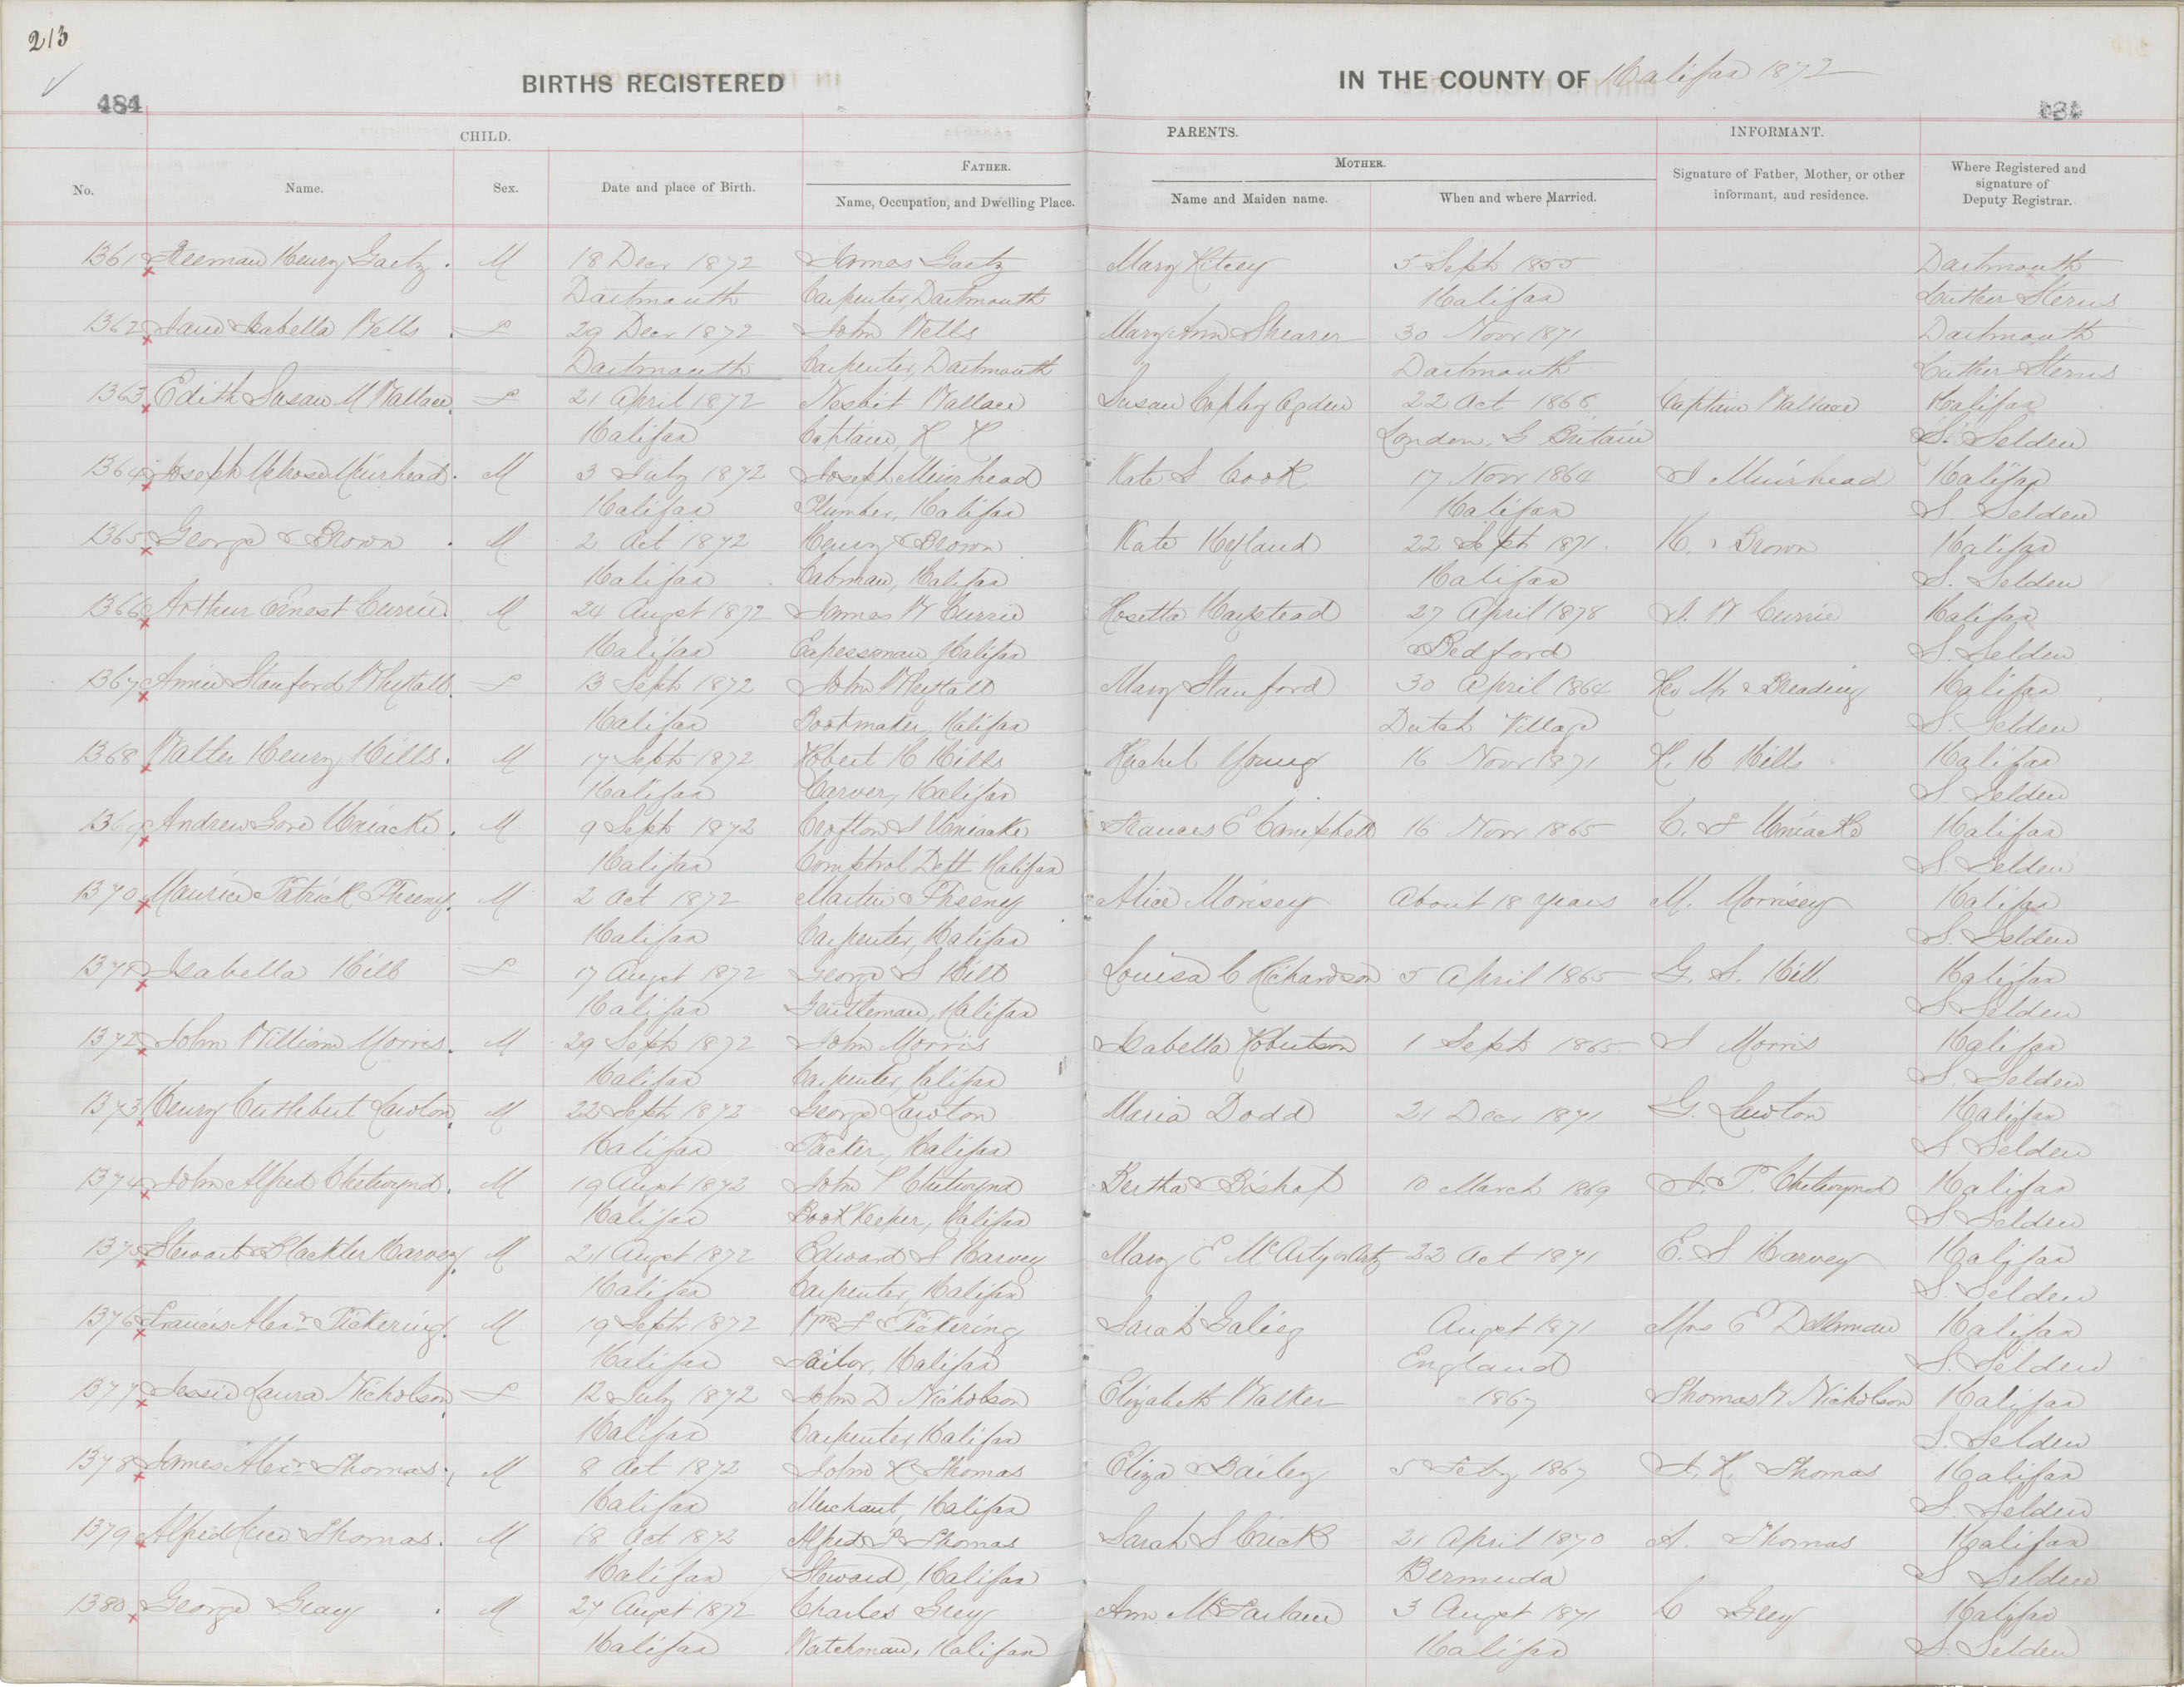 213
484
BIRTHS REGISTERED
IN THE COUNTY OF Halifax 1872
CHILD.
PARENTS.
INFORMANT.
FATHER.
MOTHER.
No.
Name.
Sex.
Date and place of Birth.
Name, Occupation, and Dwelling Place.
Name and Maiden name.
When and where Married.
Signature of Father, Mother, or other informant, and residence.
Where Registered and signature of Deputy Registrar.
1361 Freeman Henry Gaetz. M 18 Decr 1872 James Gaetz Mary Kitcey 5 Sept 1855 Dartmouth
Dartmouth Carpenter, Dartmouth Halifax Luther Sterns
1362 Jane Isabella Wells. F 29 Decr 1872 John Wells Mary Ann Shearer 30 Novr 1871 Dartmouth
Dartmouth Carpenter, Dartmouth Dartmouth Luther Sterns
1363 Edith Susan M Wallace. F 21 April 1872 Nesbit Wallace Susan Copley Ogden 22 Oct 1866 Captain Wallace Halifax
Halifax Captain, London, G Britain S. Selden
1364 Joseph Muirhead. M 3 July 1872 Joseph Muirhead Kate S Cook 17 Novr 1864 J Muirhead Halifax
Halifax Plumber, Halifax Halifax S. Selden
1365 George Brown. M 2 Oct 1872 Henry Brown Kate Hyland 22 Sept 1871. H. Brown Halifax
Halifax Cabman, Halifax Halifax S. Selden
1366 Arthur Ernest Currie. M 24 Augst 1872 James W Currie Rosetta Haystead 27 April 1878 J. W Currie Halifax
Halifax Expessman, Halifax Bedford S. Selden
1367 Annie Stanford Whytall. F 13 Sept 1872 John Whytall Mary Stanford 30 April 1864 Rev Mr Breading Halifax
Halifax Bootmaker, Halifax Dutch Village S. Selden
1368 Walter Henry Hills. M 17 Sept 1872 Robert H Hills Rachel Young 16 Novr 1871 R. H Hills Halifax
Halifax Carver, Halifax S Selden
1369 Andrew Gore Uniacke. M 9 Sept 1872 Crofton Uniacke Frances E Campbell 16 Novr 1865 Uniacke Halifax
Halifax Comptrol Dept Halifax S. Selden
1370 Maurice Patrick Sheeny. M 2 Oct 1872 Martin Sheeny Alice Morisey About 18 years M. Morrisey Halifax
Halifax Carpenter, Halifax S. Selden
1371 Isabella Hill F 17 Augst 1872 George S Hill Louisa C Richardson 5 April 1865 G. S. Hill Halifax
Halifax Gentleman, Halifax S Selden
1372 John William Morris. M 29 Sept 1872 John Morris Isabella Robertson 1 Sept 1865 J Morris Halifax
Halifax Carpenter, Halifax S. Selden
1373 Henry Cuthbert Lawton. M 22 Sept 1872 George Lawton Maria Dodd 21 Decr 1871 G. Lawton Halifax
Halifax Packer, Halifax S Selden
1374 John Alfred Chetwynd. M 19 Augst 1872 John P Chetwynd Bertha Bishop 10 March 1869 J. P. Chetwynd Halifax
Halifax Book Keeper, Halifax S Selden
1375 Stewart Blackler Harvey. M 21 Augst 1872 Edward S Harvey Mary E 22 Oct 1871 E. S Harvey Halifax
Halifax Carpenter, Halifax S. Selden
1376 Francis Alexr Pickering. M 19 Sept 1872 Wm F Pickering Sarah Augst 1871 Mrs E Halifax
Halifax Sailor, Halifax England S. Selden
1377 Jessie Laura Nicholson. F 12 July 1872 John D Nicholson Elizabeth Walker 1867 Thomas W Nicholson Halifax
Halifax Carpenter, Halifax S. Selden
1378 James Alexr Thomas. M 8 Oct 1872 John R Thomas Eliza Bailey 5 Feby 1867 J. R. Thomas Halifax
Halifax Merchant, Halifax S. Selden
1379 Alfred Thomas. M 18 Oct 1872 Alfred Thomas Sarah S Crick 21 April 1870 A. Thomas Halifax
Halifax Steward, Halifax Bermuda S Selden
1380 George Gray. M 27 Augst 1872 Charles Grey Ann McFarlane 3 Augst 1871 C Grey Halifax
Halifax Watchman, Halifax Halifax S. Selden